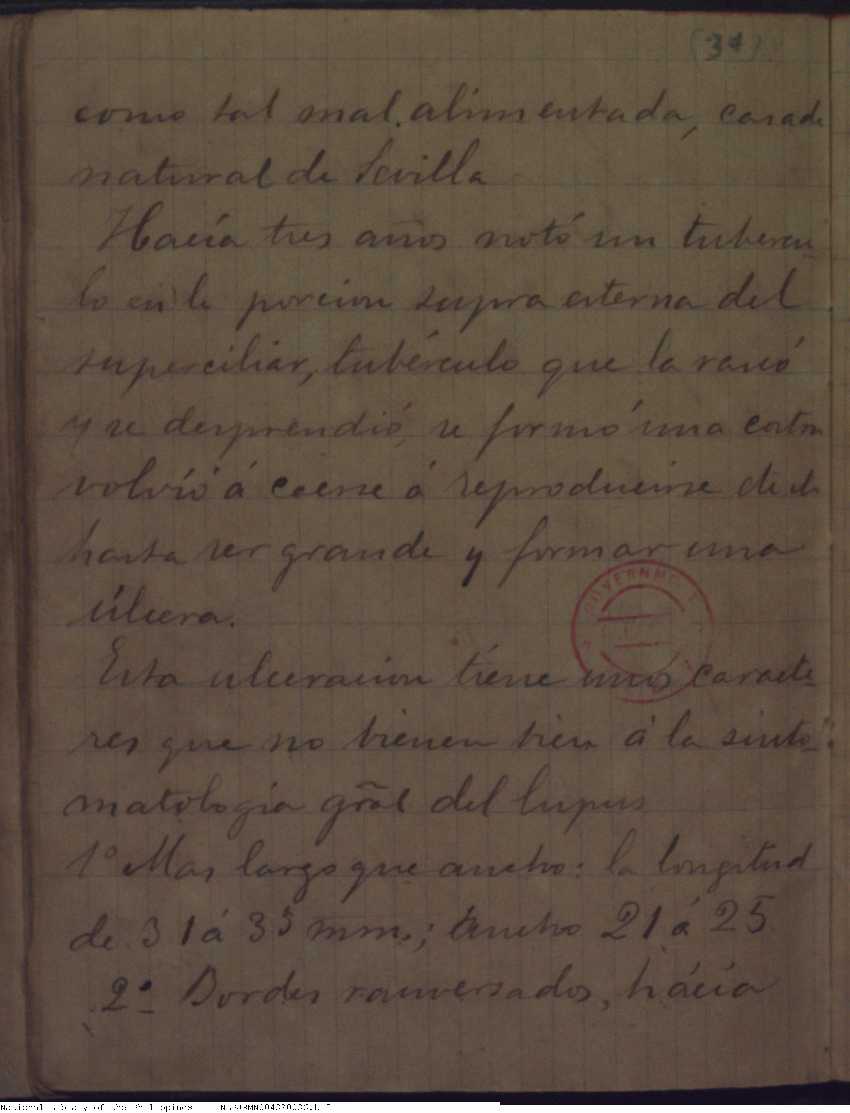 (34)
como tal mal alimentada, casada
natural de Sevilla
Hacía tres años notó un tubercu-
lo en la porcion supra externa del
superciliar, tubérculo que la rascó
y se desprendió, se formó una costra
volvió á caerse á reproducirse
hasta ser grande y formar una
úlcera.
Esta ulceracion tiene unos caracte-
res que no vienen bien á la sinto-
matología gral del lupus
1º Mas largo que ancho: la longitud
de 31 á 35 mm.; ancho 21 á 25
2º Bordes ranversados, hácia
GOVERNMENT
National Library of the Philippines